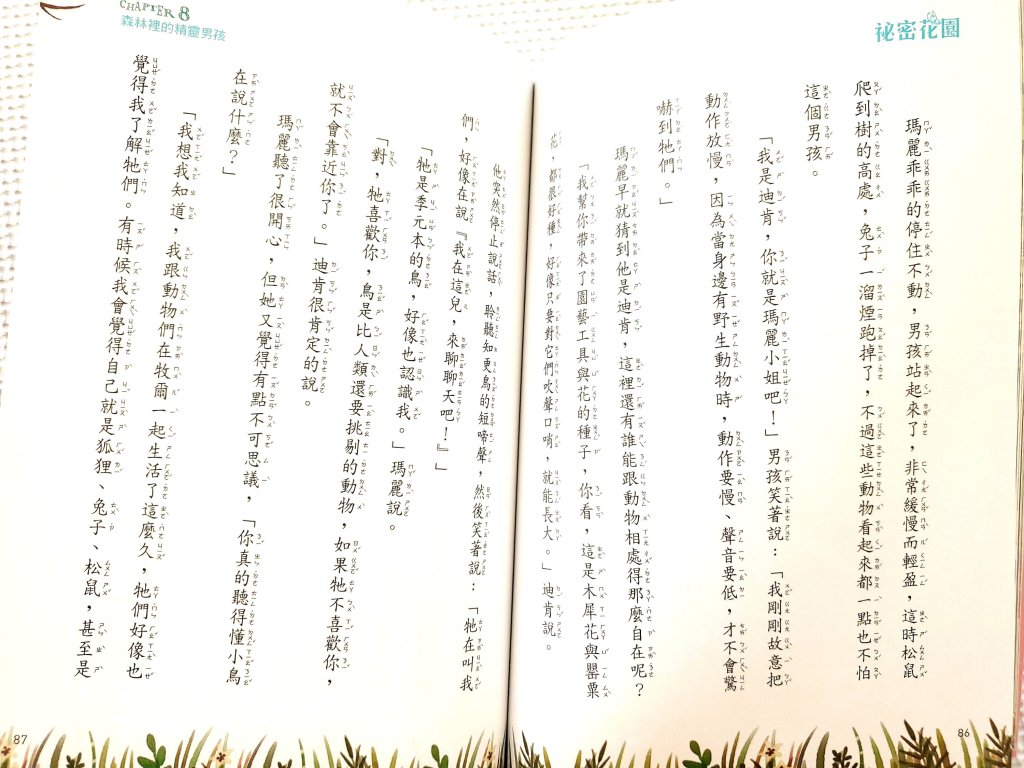 祕密花園
瑪麗乖乖的停住不動，男孩站起來了，非常緩慢而輕盈，這時松鼠
爬到樹的高處，兔子一溜煙跑掉了，不過這些動物看起來都一點也不怕
這個男孩。
「我是迪肯，你就是瑪麗小姐吧！」男孩笑著說：「我剛剛故意把
動作放慢，因為當身邊有野生動物時，動作要慢、聲音要低，才不會驚
嚇到牠們。」
瑪麗早就猜到他是迪肯，這裡還有誰能跟動物相處得那麼自在呢？
「我幫你帶來了園藝工具與花的種子，你看，這是木犀花與罌粟
花，都很好種，好像只要對它們吹聲口哨，就能長大。」迪肯說。
86
CHAPTER 8
森林裡的精靈男孩
他突然停止說話，聆聽知更鳥的短啼聲，然後笑著說：「牠在叫我
們，好像在說『我在這兒，來聊聊天吧！』」
「牠是季元本的鳥，好像也認識我。」瑪麗說。
「對，牠喜歡你，鳥是比人類還要挑剔的動物，如果牠不喜歡你，
就不會靠近你了。」迪肯很肯定的說。
瑪麗聽了很開心，但她又覺得有點不可思議，「你真的聽得懂小鳥
在說什麼？」
「我想我知道，我跟動物們在牧爾一起生活了這麼久，牠們好像也
覺得我了解牠們。有時候我會覺得自己就是狐狸、兔子、松鼠，甚至是
87